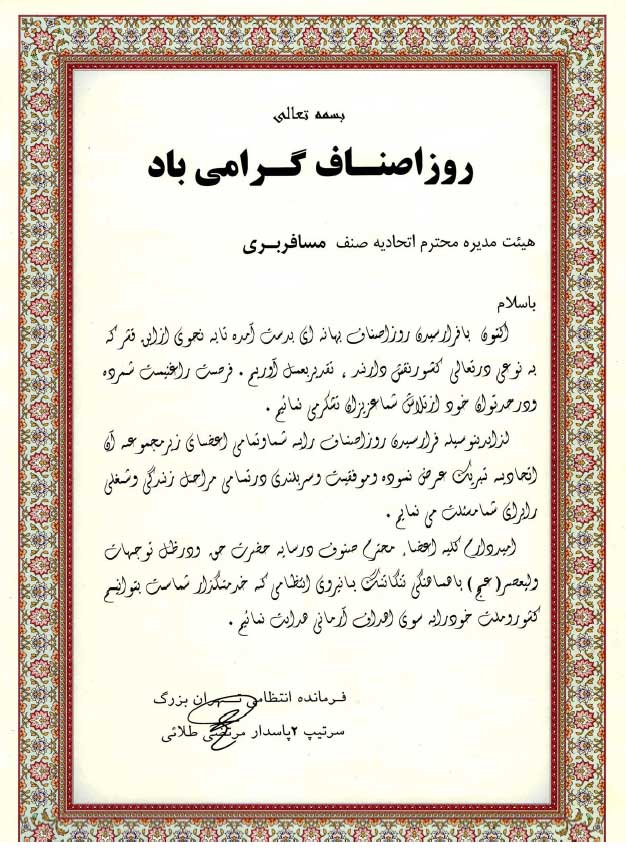 بسمه تعالی
روز اصناف گرامی باد
هیئت مدیره محترم اتحادیه صنف مسافربری
باسلام
اکنون بافرارسیدن روزاصناف بهانه ای بدست آمده تابه نحوی ازاین قشر که
به نوعی درتعالی کشورنقش دارند ، تقدیربعمل آوریم . فرصت راغنیمت شمرده
ودرحدتوان خود ازتلاش شماعزیزان تشکرمی نمائیم .
لزابدینوسیله فرارسیدن روزاصناف رابه شماوتمامی اعضای زیرمجموعه آن
اتحادیه تبریک عرض نموده وموفقیت وسربلندی درتمامی مراحل زندگی وشغلی
رابرای شمامسئلت می نمایم .
امیددارم کلیه اعضاء محترم صنوف درسایه حضرت حق ودرظل توجهات
ولیعصر(عج) باهماهنگی تنگاتنگ بانیروی انتظامی که خدمتگذار شماست بتوانیم
کشوروملت خودرابه سوی اهداف آرمانی هدایت نمائیم .
فرمانده انتظامی تهران بزرگ
سرتیپ ۲پاسدار مرتضی طلائی